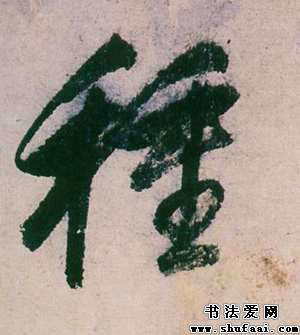 種
书法爱网
www.shufaai.com